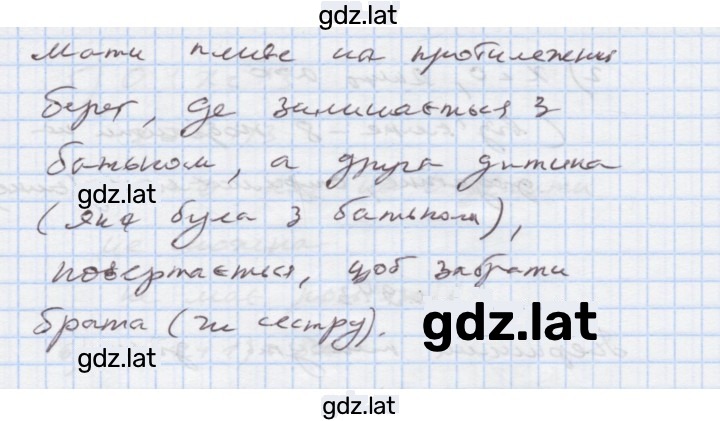 gdz.lat
Мати пливе на протилежний
берег, де залишається з
батьком, а друга дитина
gdz.lat
(яка була з батьком),
повертається, щоб забрати
брата (чи сестру).
gdz.lat
gdz.lat
gdz.lat